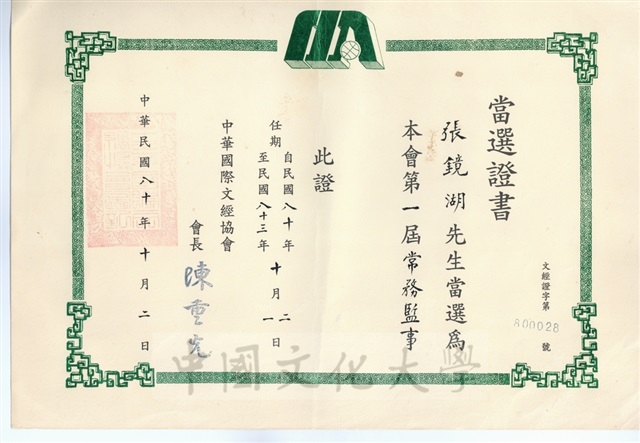 當選證書
文經證字第 800028 號
張鏡湖先生當選為
本會第一屆常務監事
此證
任期 自民國八十年十月二日
至民國八十三年十月一日
中華國際文經協會
會長 陳重光
中華民國八十年十月二日
中國文化大學